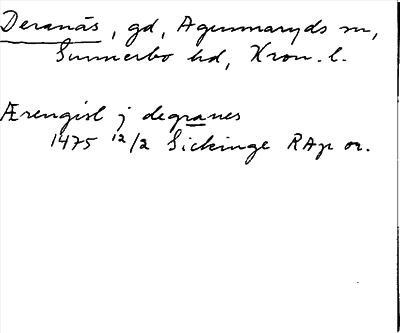 Deranäs, gd, Agunnaryds sn,
Sunnerbo hd, Kron. l.
Ærengisl j degranes
1475 12/2 Sickinge RAp or.